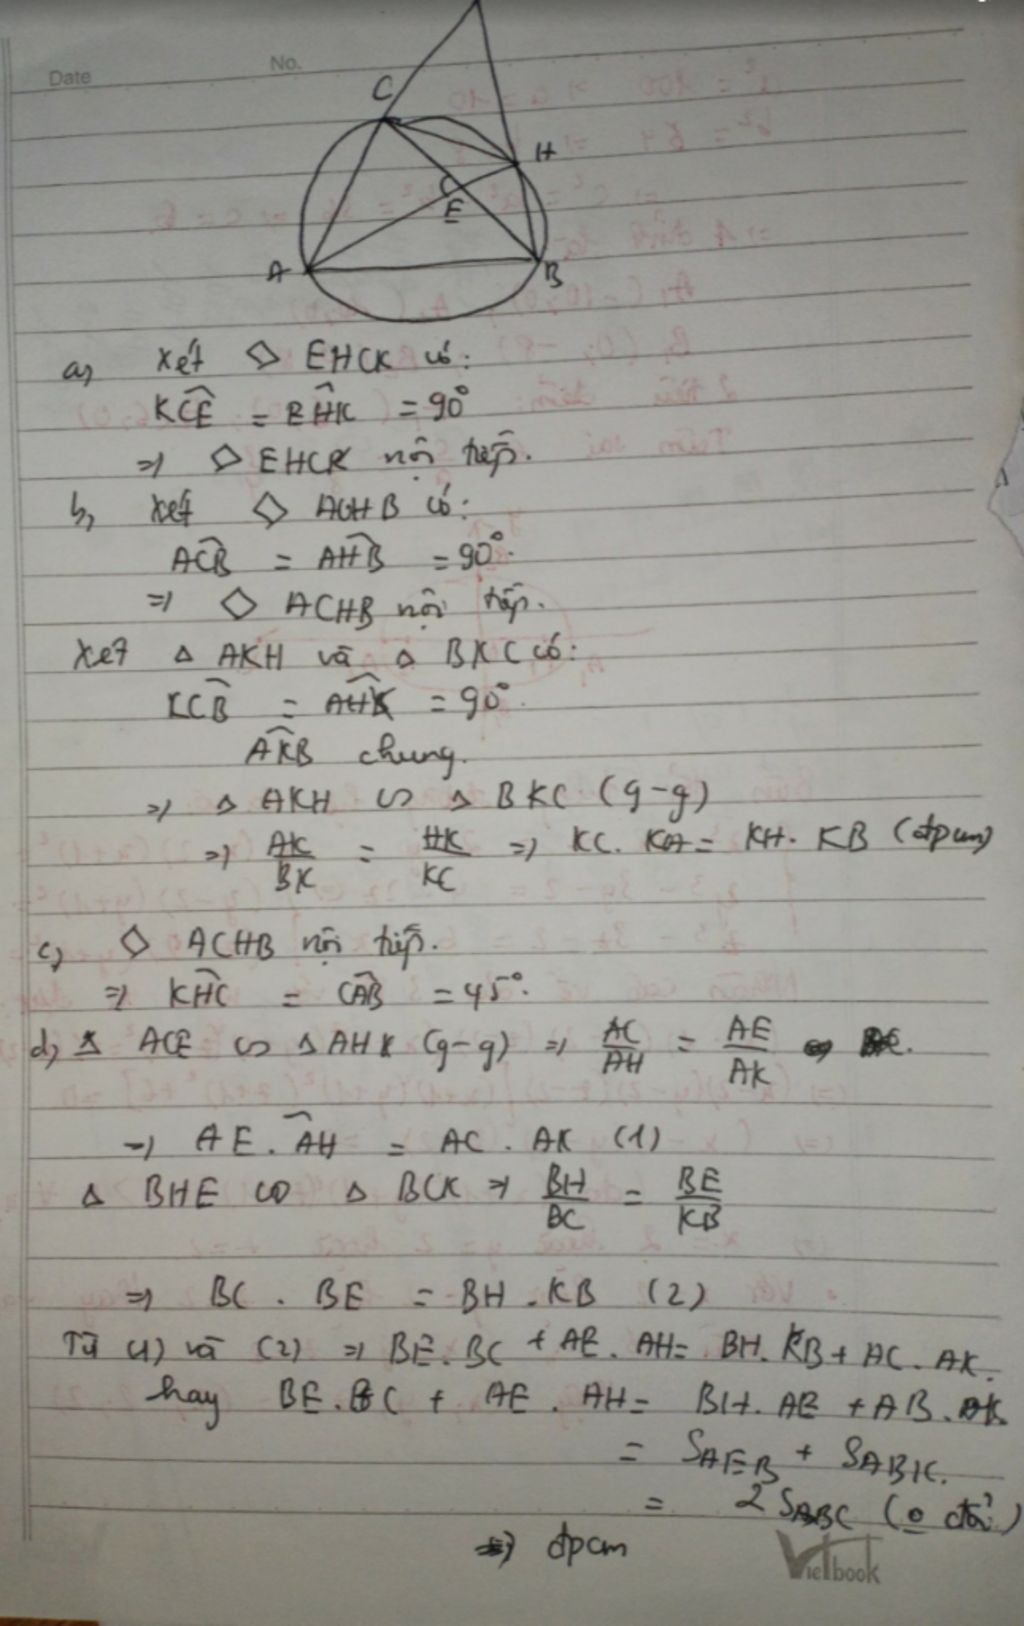 Date No.
C
H
E
A
B
a) Xét ◇ EHCK có:
KCE = EHK = 90°
=> ◇ EHCK nội tiếp.
b, Xét ◇ ACHB có:
ACB = AHB = 90°.
=> ◇ ACHB nội tiếp.
Xét Δ AKH và Δ BKC có:
KCB = AHK = 90°.
AKB chung.
=> Δ AKH ∽ Δ BKC (g-g)
=> AK/BK = HK/KC => KC. KA = KH. KB (đpcm)
c, ◇ ACHB nội tiếp.
=> KHC = CAB = 45°.
d, Δ ACE ∽ Δ AHK (g-g) => AC/AH = AE/AK
=> AE. AH = AC. AK (1)
Δ BHE ∽ Δ BCK => BH/BC = BE/KB
=> BC. BE = BH. KB (2)
Từ (1) và (2) => BE. BC + AE. AH = BH. KB + AC. AK.
hay BE. BC + AE. AH = BH. AE + AB.
= S AEB + S ABK.
= 2 S ABC
=> đpcm
Vietbook